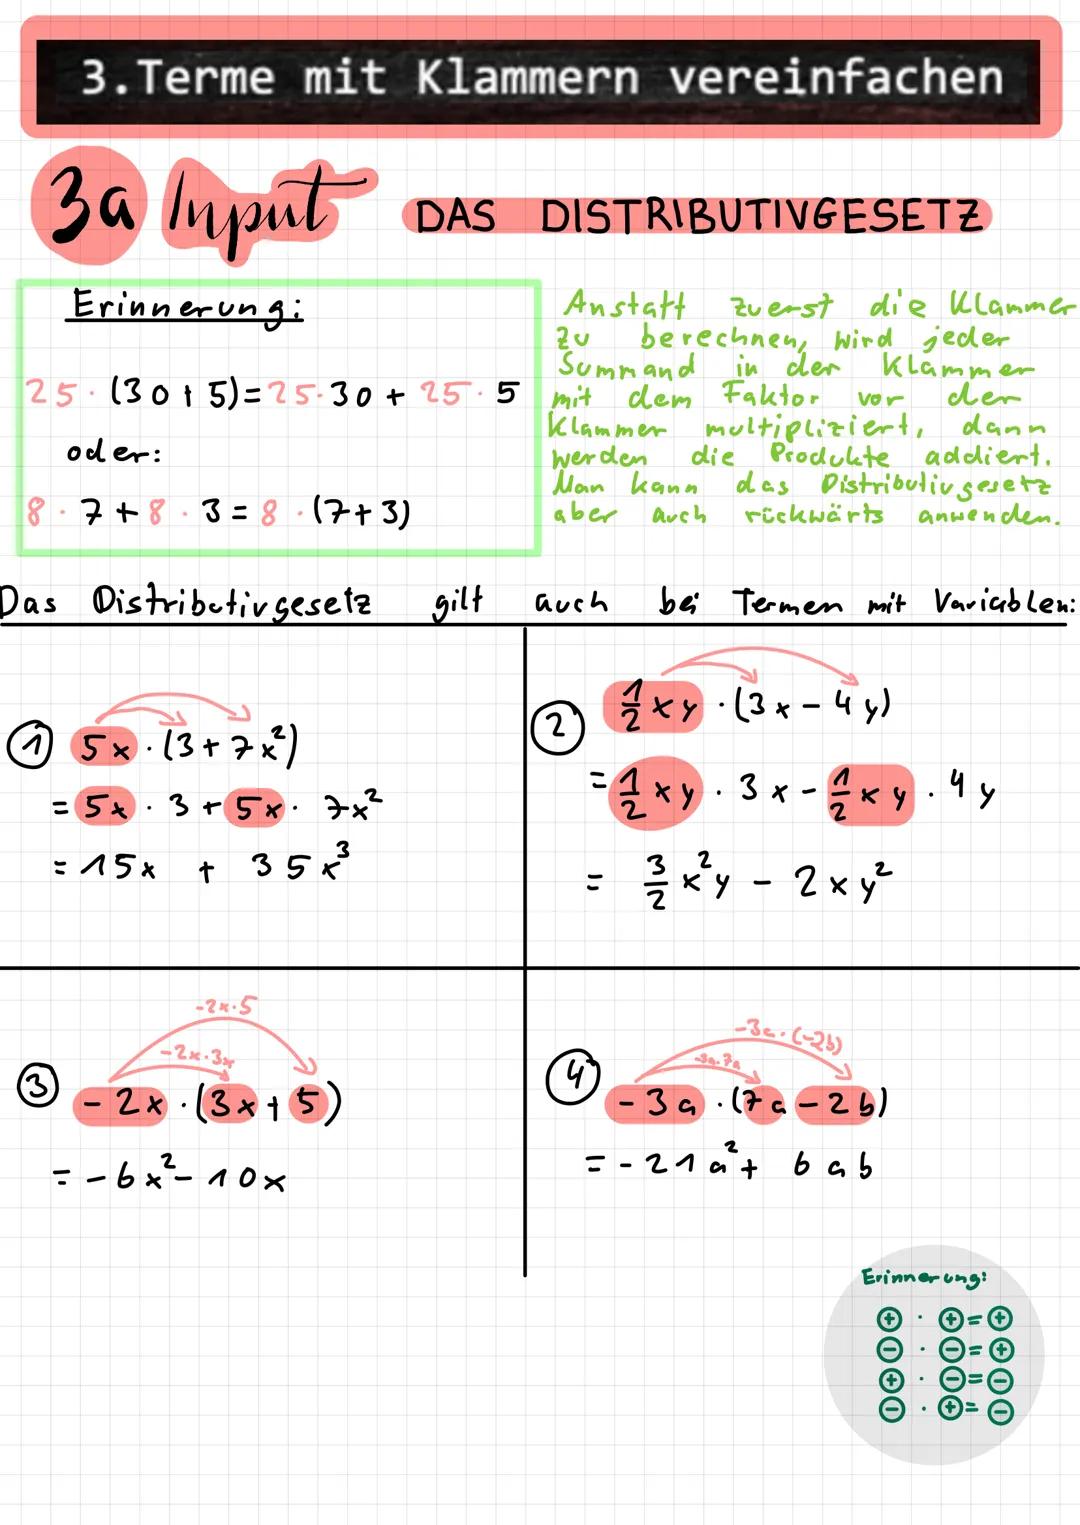 3.Terme mit Klammern vereinfachen
3a Input DAS DISTRIBUTIVGESETZ
Erinnerung:
25 · (30 + 5) = 25 · 30 + 25 · 5
oder:
8 · 7 + 8 · 3 = 8 · (7+3)
Anstatt zuerst die Klammer
zu berechnen, wird jeder
Summand in der Klammer
mit dem Faktor vor der
Klammer multipliziert, dann
werden die Produkte addiert.
Man kann das Distributivgesetz
aber auch rückwärts anwenden.
Das Distributivgesetz gilt auch bei Termen mit Variablen:
① 5x · (3 + 7x²)
= 5x · 3 + 5x · 7x²
= 15x + 35x³
② ½xy · (3x − 4y)
= ½xy · 3x − ½xy · 4y
= 3/2 x²y − 2xy²
-2x·5
-2x·3x
③ -2x · (3x + 5)
= -6x² - 10x
-3a·(-2b)
-3a·7a
④ -3a · (7a - 2b)
= -21a² + 6ab
Erinnerung:
⊕ · ⊕ = ⊕
⊖ · ⊖ = ⊕
⊕ · ⊖ = ⊖
⊖ · ⊕ = ⊖